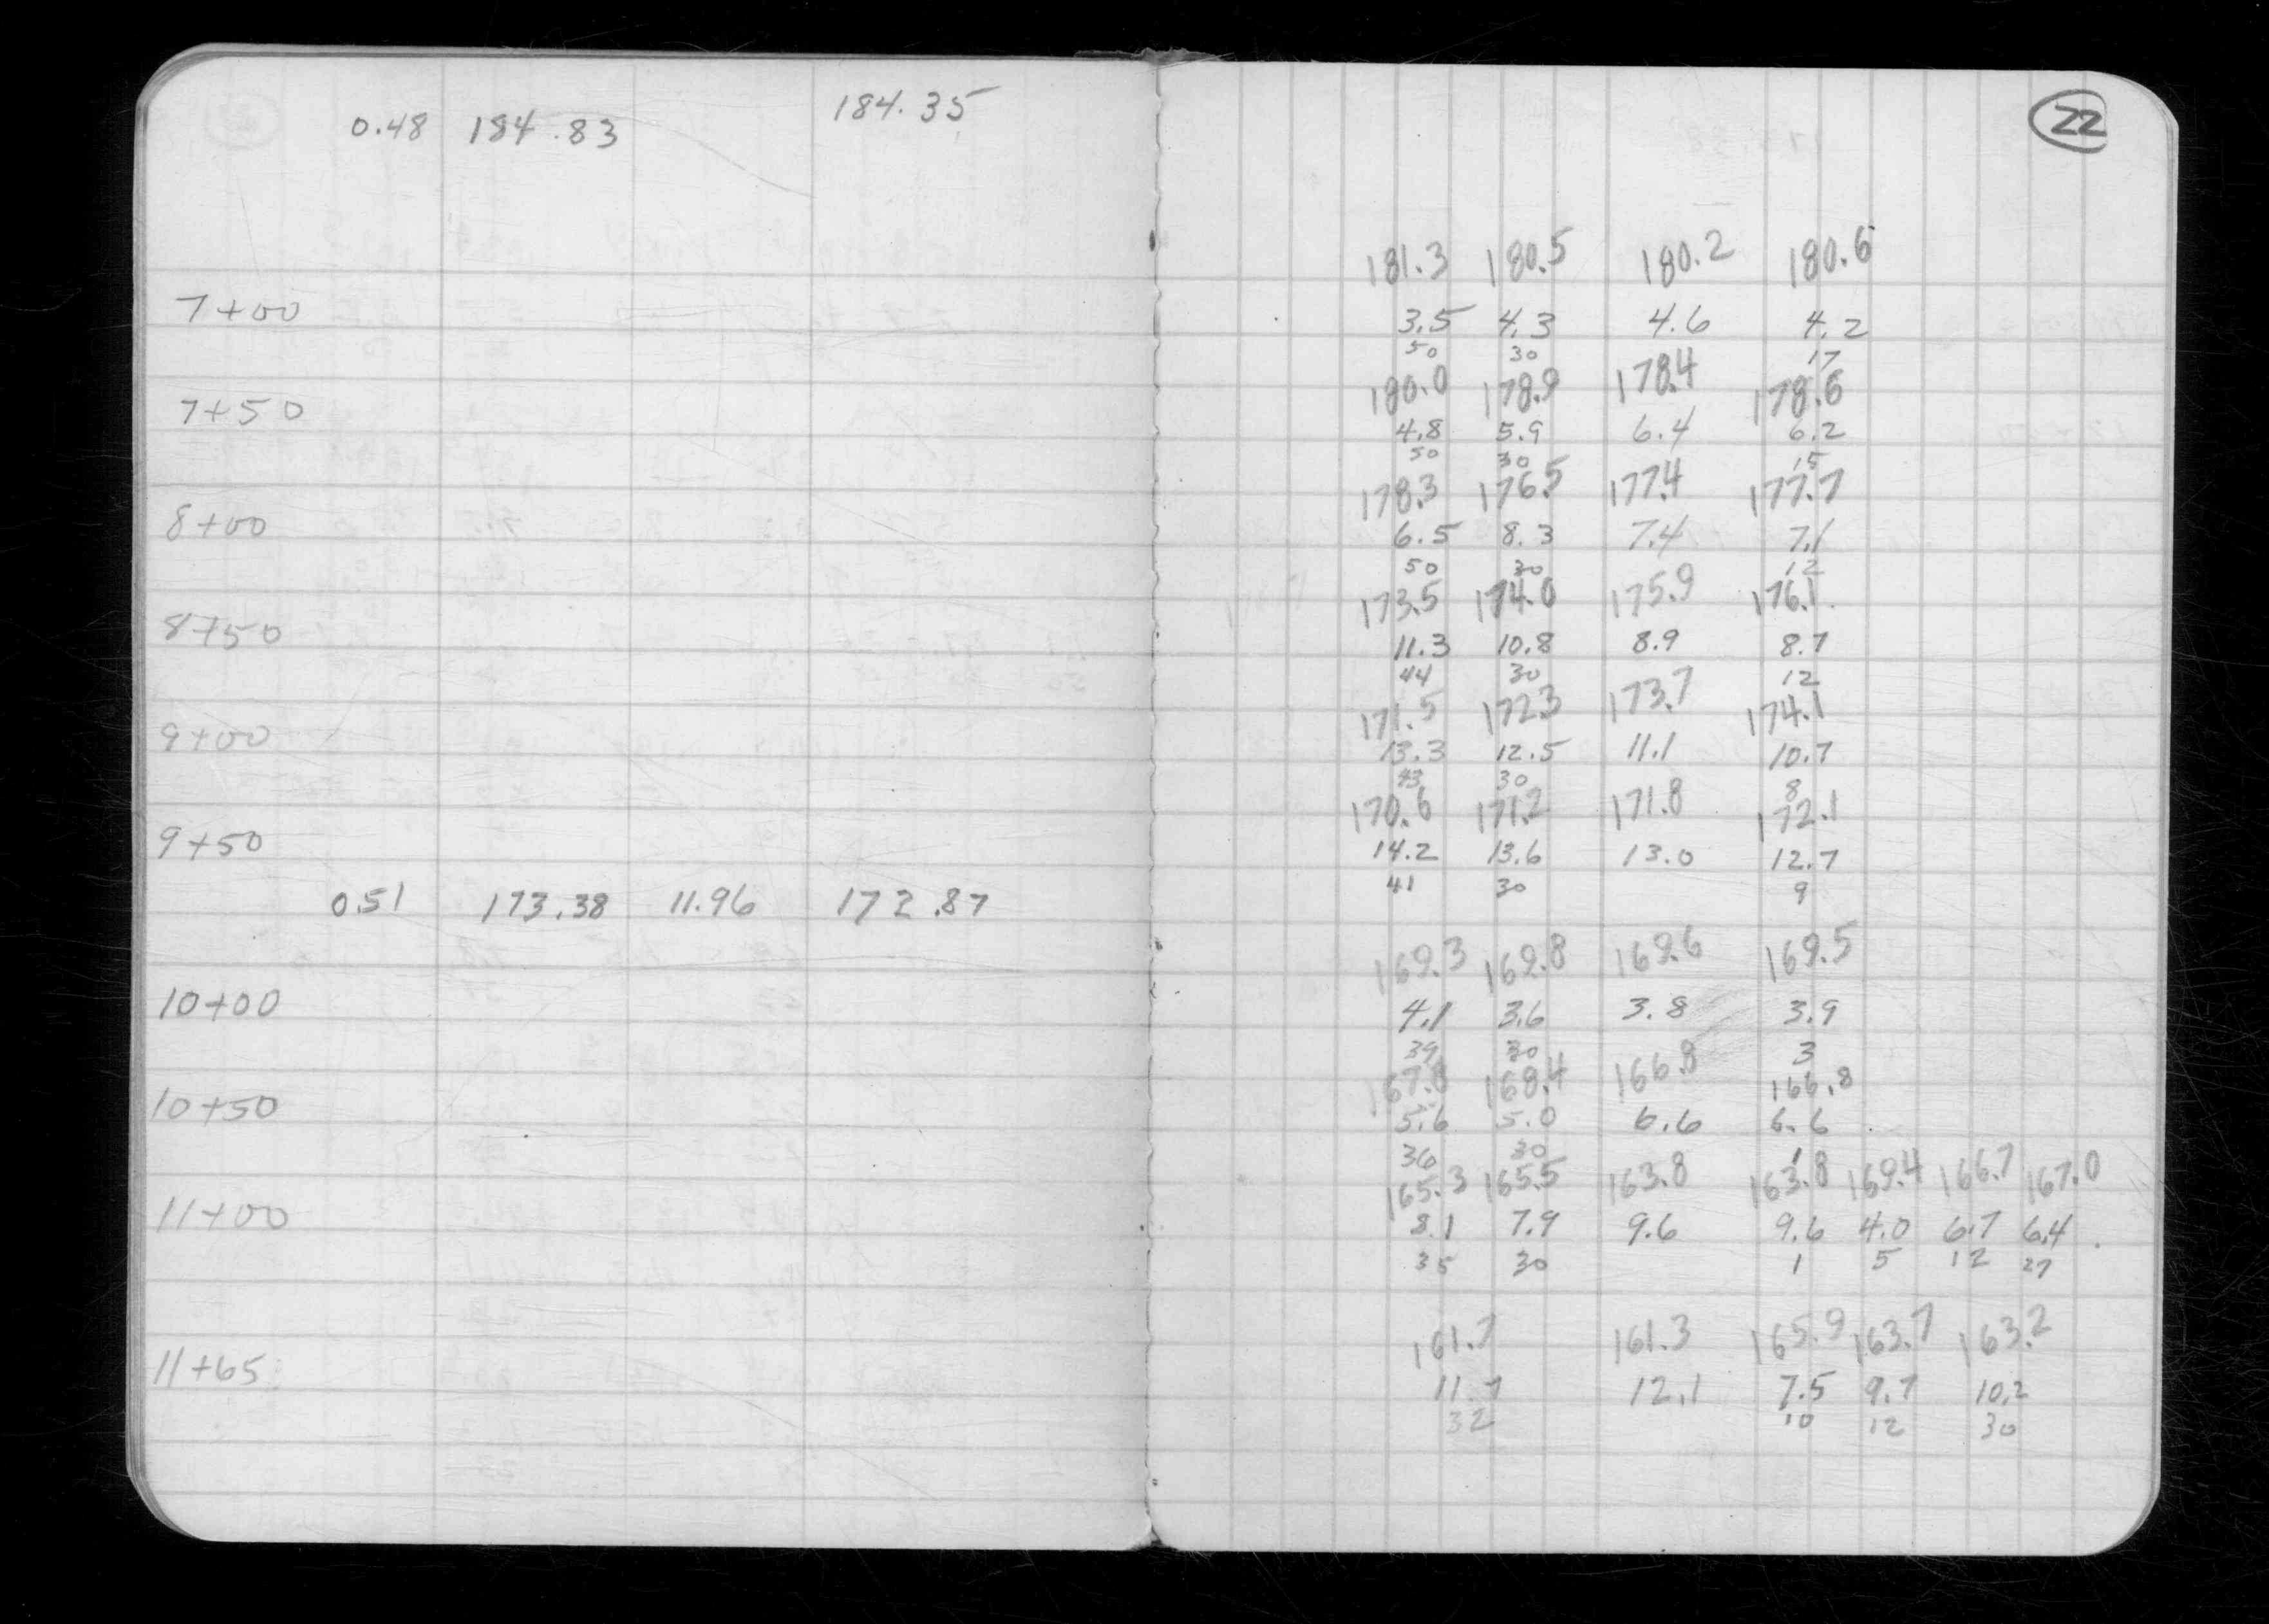 184.35
0.48 184.83
7+00
7+50
8+00
8+50
9+00
9+50
0.51 173.38 11.96 172.87
10+00
10+50
11+00
11+65
22
181.3 180.5 180.2 180.6
3.5 4.3 4.6 4.2
50 30 17
180.0 178.9 178.4 178.6
4.8 5.9 6.4 6.2
50 30 15
178.3 176.5 177.4 177.7
6.5 8.3 7.4 7.1
50 30 12
173.5 174.0 175.9 176.1
11.3 10.8 8.9 8.7
44 30 12
171.5 172.3 173.7 174.1
13.3 12.5 11.1 10.7
43 30 8
170.6 171.2 171.8 172.1
14.2 13.6 13.0 12.7
41 30 9
169.3 169.8 169.6 169.5
4.1 3.6 3.8 3.9
39 30 3
167.8 168.4 166.8 166.8
5.6 5.0 6.6 6.6
36 30 1
165.3 165.5 163.8 163.8 169.4 166.7 167.0
8.1 7.9 9.6 9.6 4.0 6.7 6.4
35 30 1 5 12 27
161.7 161.3 165.9 163.7 163.2
11.7 12.1 7.5 9.7 10.2
32 10 12 30